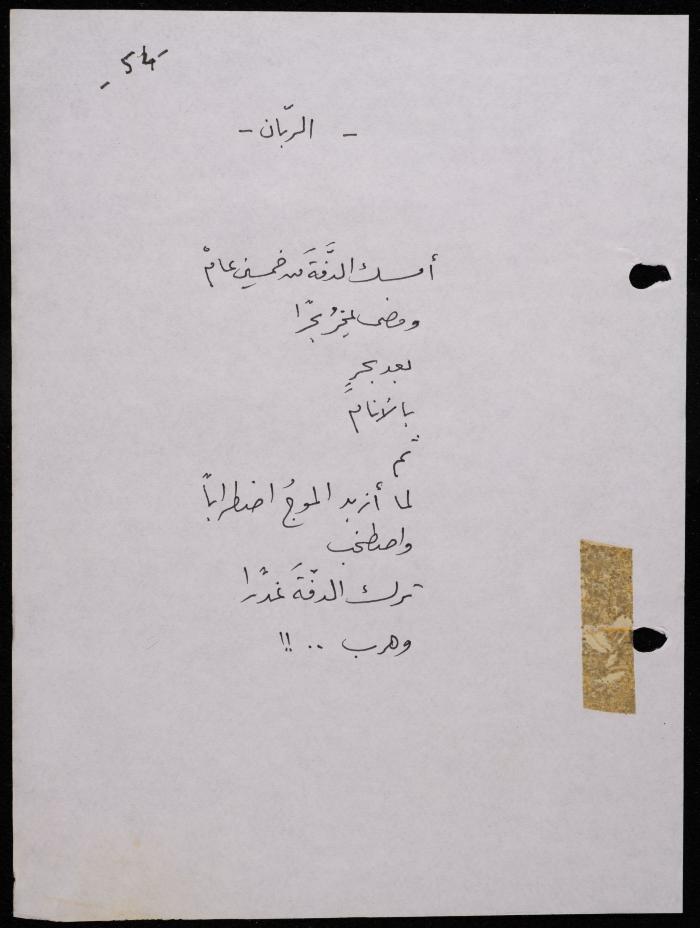 - 54 -
- الربّان -
أمسك الدفَّةَ من خمسين عامْ
ومضى يمخرُ بحرًا
بعد بحرٍ
بالأنامْ
ثم
لما أزبد الموجُ اضطراباً
واصطخب
ترك الدفّةَ غدرًا
وهرب .. !!